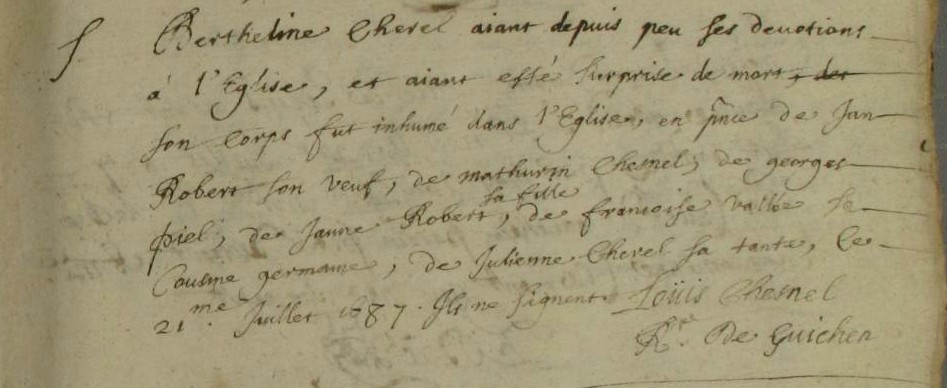 f. Bertheline Cherel aiant depuis peu ses devotions
à l'Eglise, et aiant esté surprise de mort, des
son corps fut inhumé dans l'Eglise, en pñce de Jan
Robert son veuf, de mathurin Chesnel, de georges
piel, de Janne Robert sa fille, de francoise vallée sa
Cousine germaine, de Julienne Cherel sa tante, le
21me. Juillet 1687. Ils ne signent. Loüis Chesnel
Rr. De Guichen